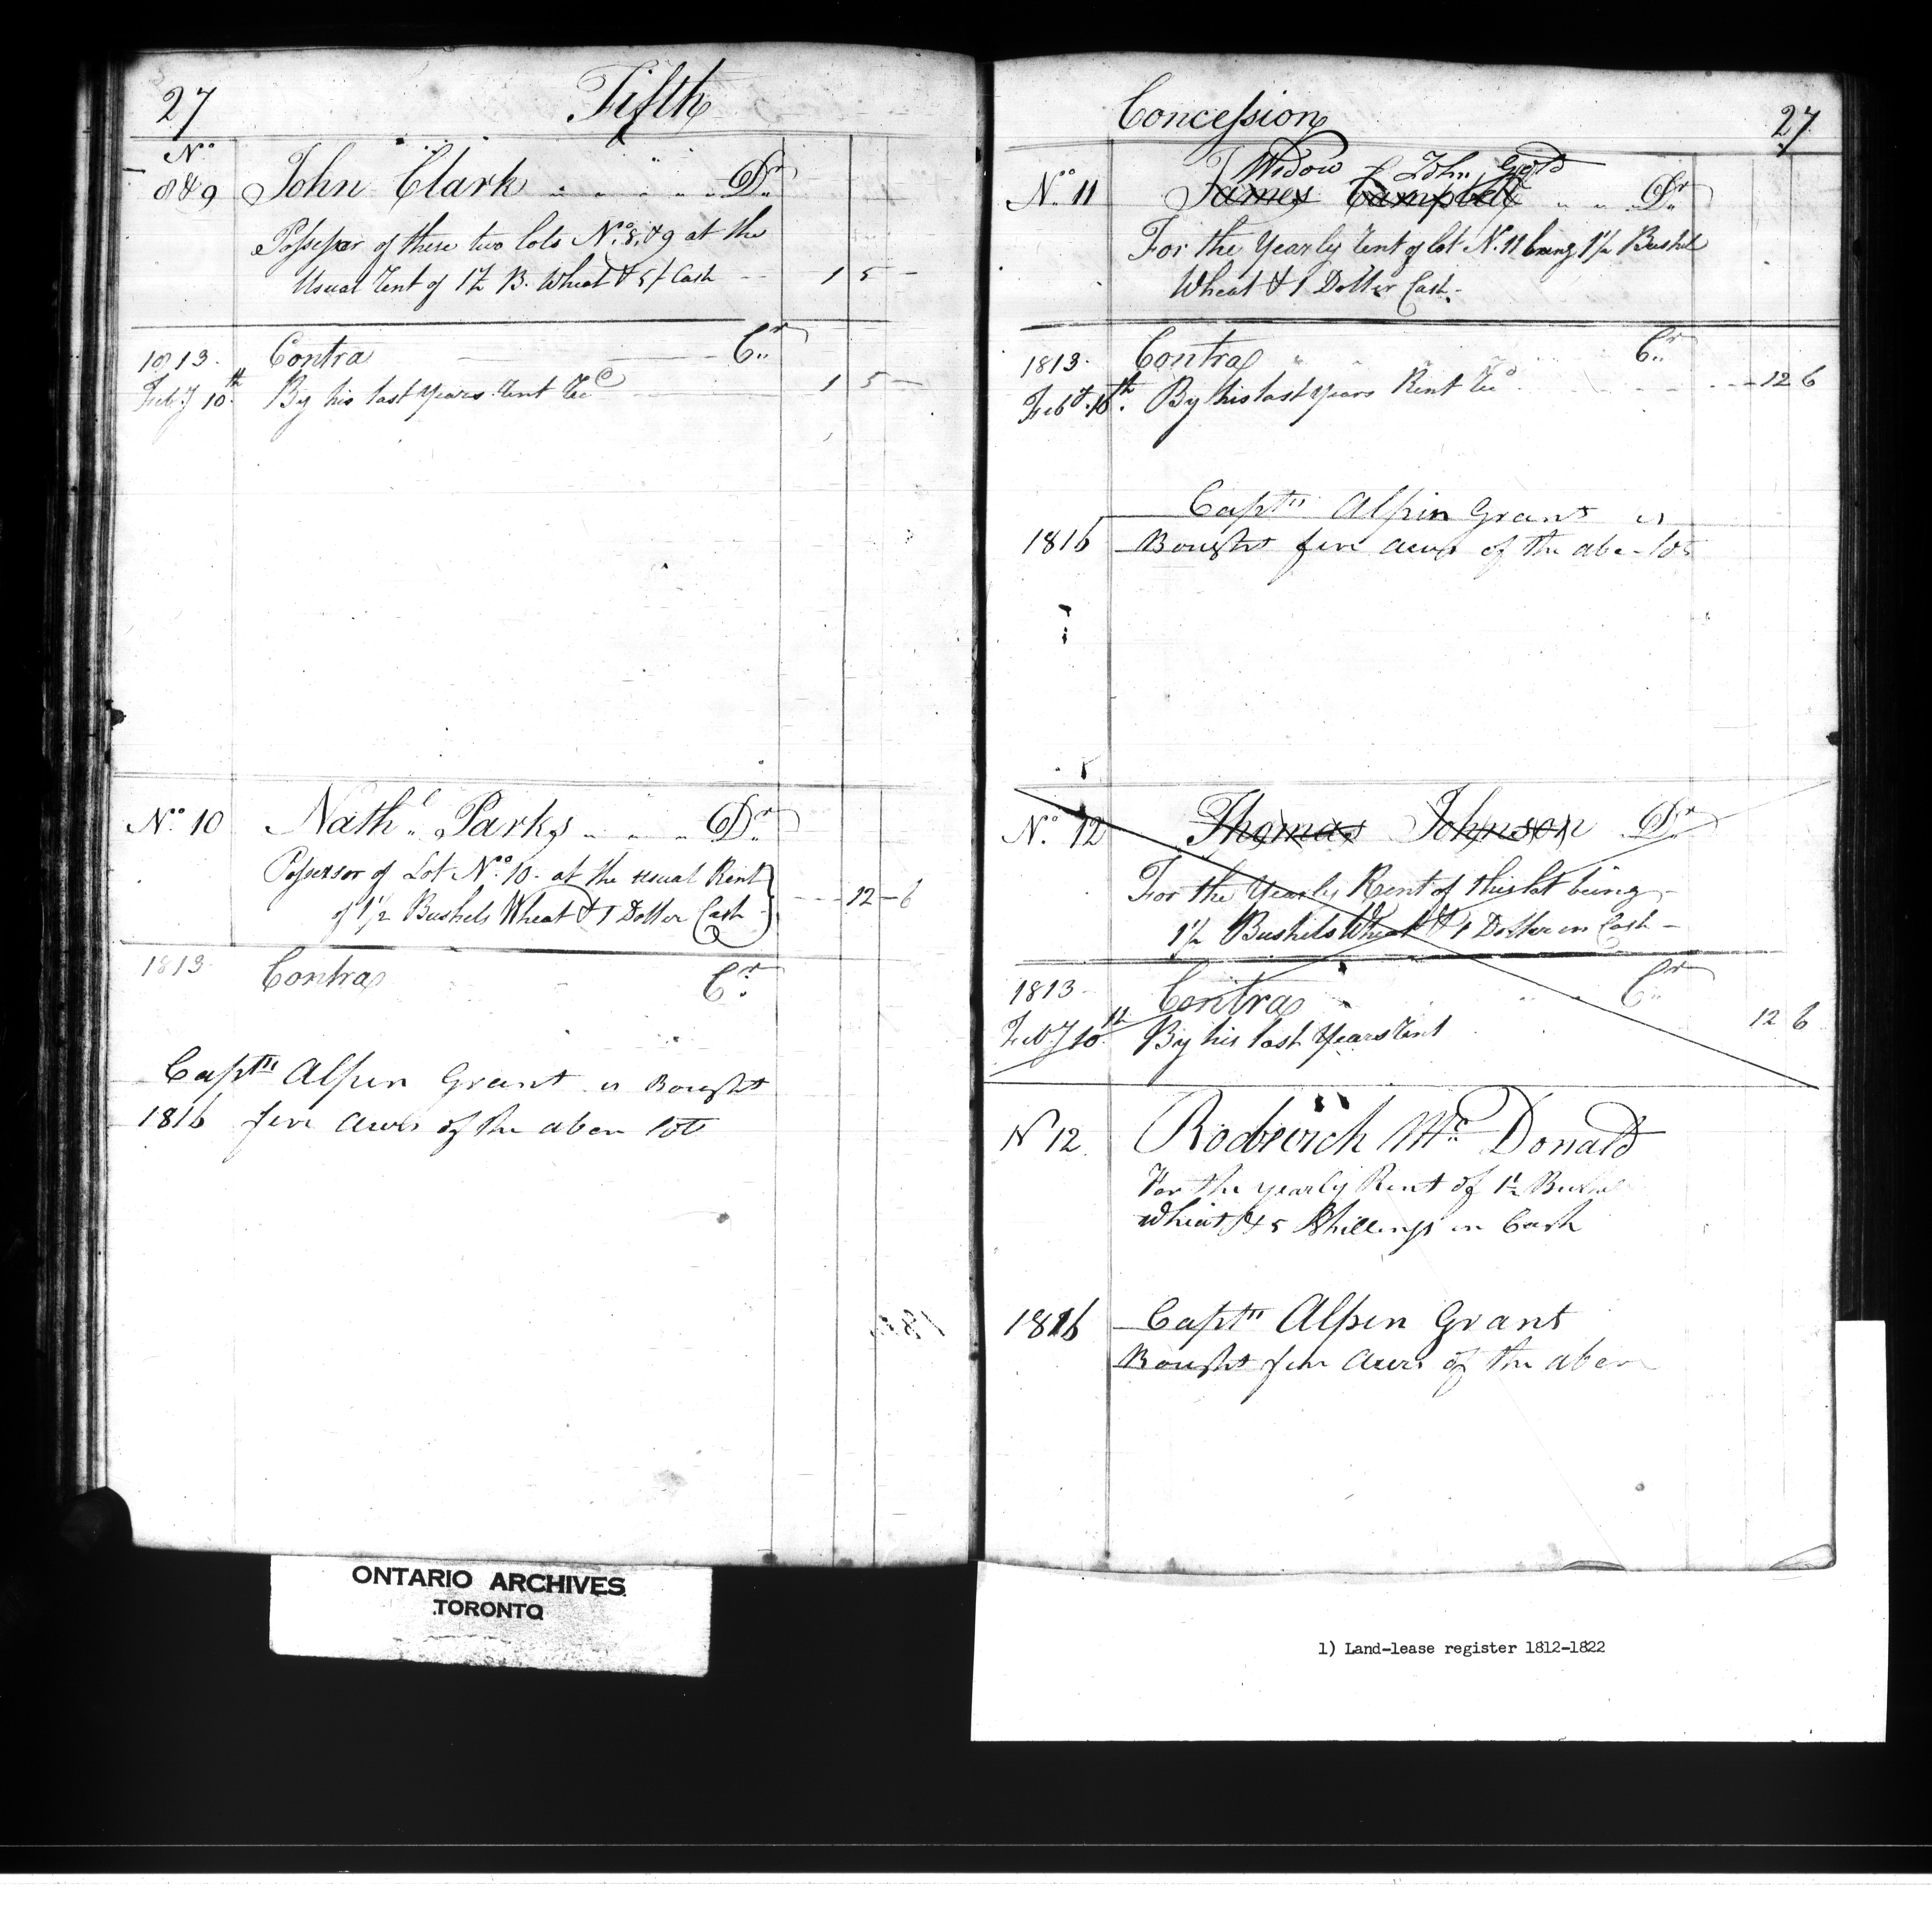 27 Fifth
No
8 & 9 John Clark Dr
Possessor of these two lots No. 8, & 9 at the
Usual Rent of 1½ B. Wheat & 5/ Cash -- 1 5 -
1813. Contra Cr
Feby 10th By his last years Rent Rec 1 5 -
No. 10 Nathl Parks Dr
Possessor of Lot No. 10. at the usual Rent
of 1½ Bushels Wheat & 1 Doller Cash 12 - 6
1813 Contra Cr
Captn Alpin Grant is Bought
1816 five acres of the above lots
Concession 27
Widow John
No. 11 James Campbell Dr
For the Yearly Rent of lot N. 11 being 1½ Bushel
Wheat & 1 Doller Cash -
1813. Contra Cr
Feby. 10th. By his last years Rent Recd 12 6
Captn Alpin Grant is
1816 Bought five acres of the above lot
No. 12 Thomas Johnson Dr
For the Yearly Rent of this lot being -
1½ Bushels Wheat & 1 Doller in Cash -
1813 - Contra Cr
Feby 10th By his last Years Rent 12 6
N 12 Roderich Mc Donald
For the yearly Rent of 1½ Bushel
Wheat & 5 Shillings in Cash
1816 Captn Alpin Grant
Bought five acres of the above
ONTARIO ARCHIVES
TORONTO
1) Land-lease register 1812-1822